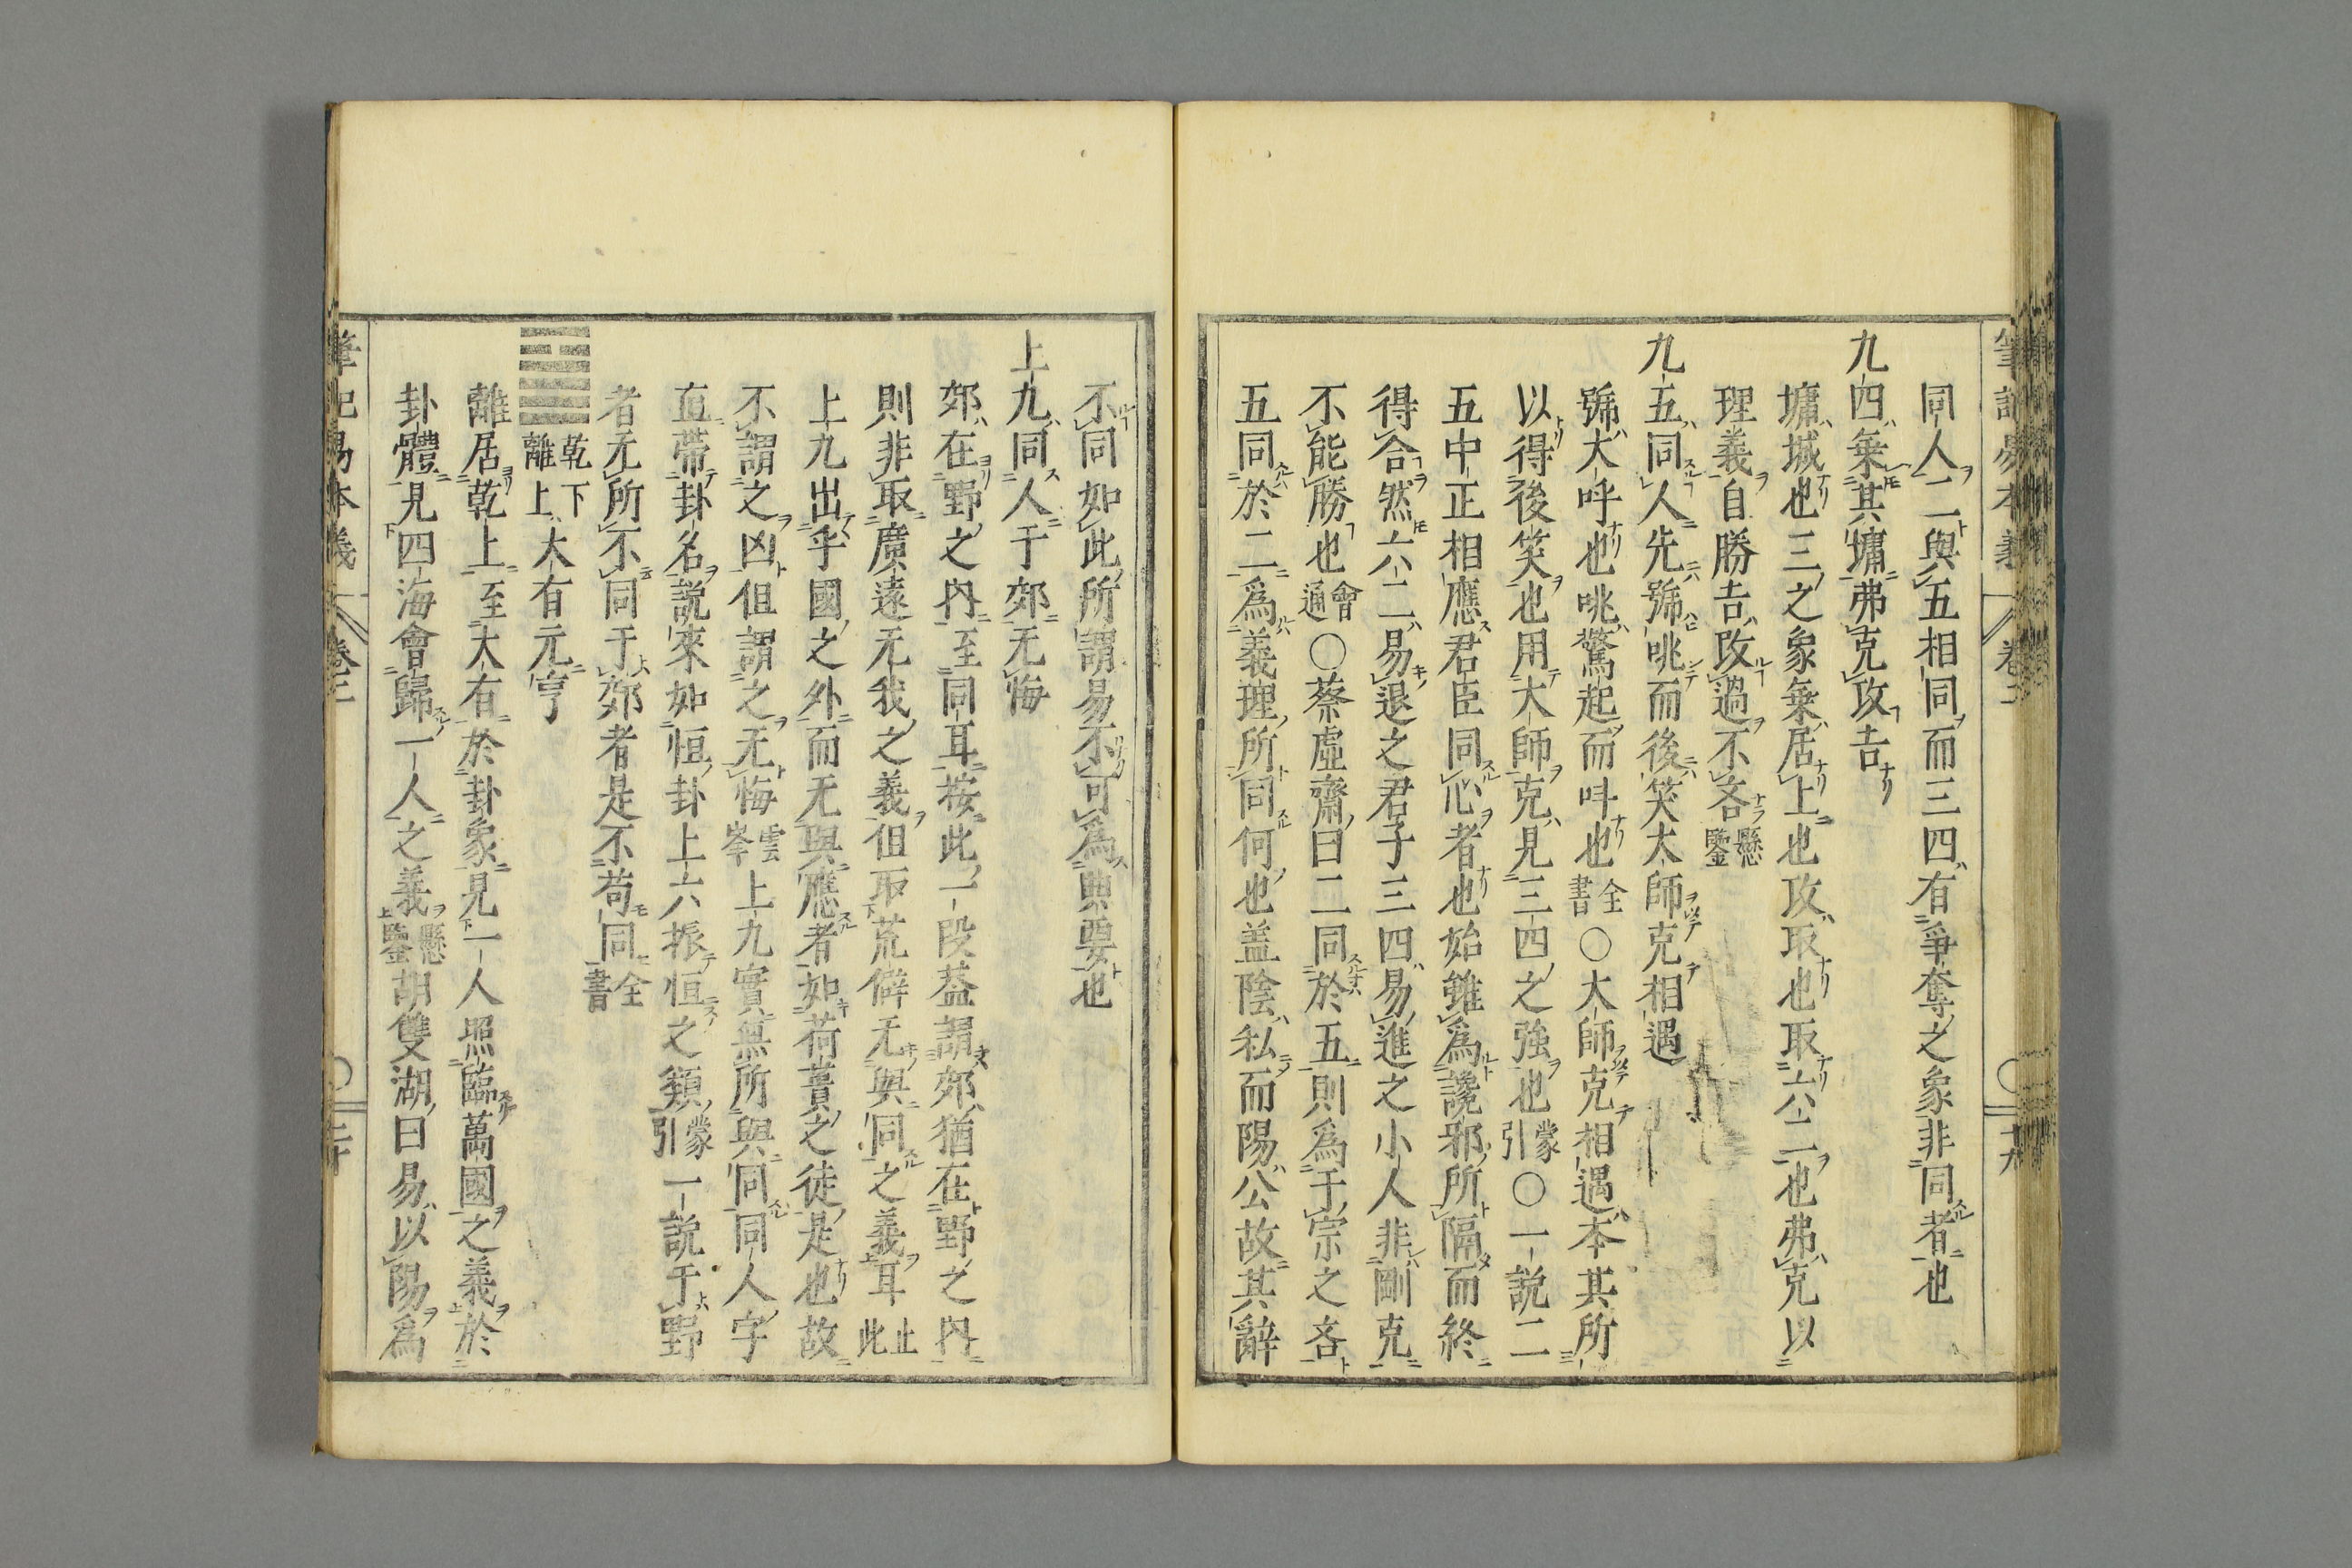 同人二與五相同而三四有爭奪之象非同者也
九四乗其墉弗克攻吉
墉城也三之象乗居上也攻取也取六二也弗克以
理義自勝吉改過不吝懸鑒
九五同人先號咷而後笑大師克相遇
號大呼也咷驚起而呌也全書〇大師克相遇本其所
以得後笑也用大師克見三四之強也蒙引〇一説二
五中正相應君臣同心者也始雖為讒邪所隔而終
得合然六二易退之君子三四易進之小人非剛克
不能勝也會通〇蔡虛齋曰二同於五則為于宗之吝
五同於二為義理所同何也盖陰私而陽公故其辭
不同如此所謂易不可為典要也
上九同人于郊无悔
郊在野之內至同耳按此一段蓋謂郊猶在野之內
則非取廣遠无我之義但取荒僻无與同之義耳止此
上九出乎國之外而无與應者如荷蕢之徒是也故
不謂之凶但謂之无悔雲峯上九實無所與同同人字
直帶卦名説來如恒卦上六振恒之類蒙引一説于野
者无所不同于郊者是不苟同全書
乾下離上大有元亨
離居乾上至大有於卦象見一人照臨萬國之義於
卦體見四海會歸一人之義懸鑒胡雙湖曰易以陽為